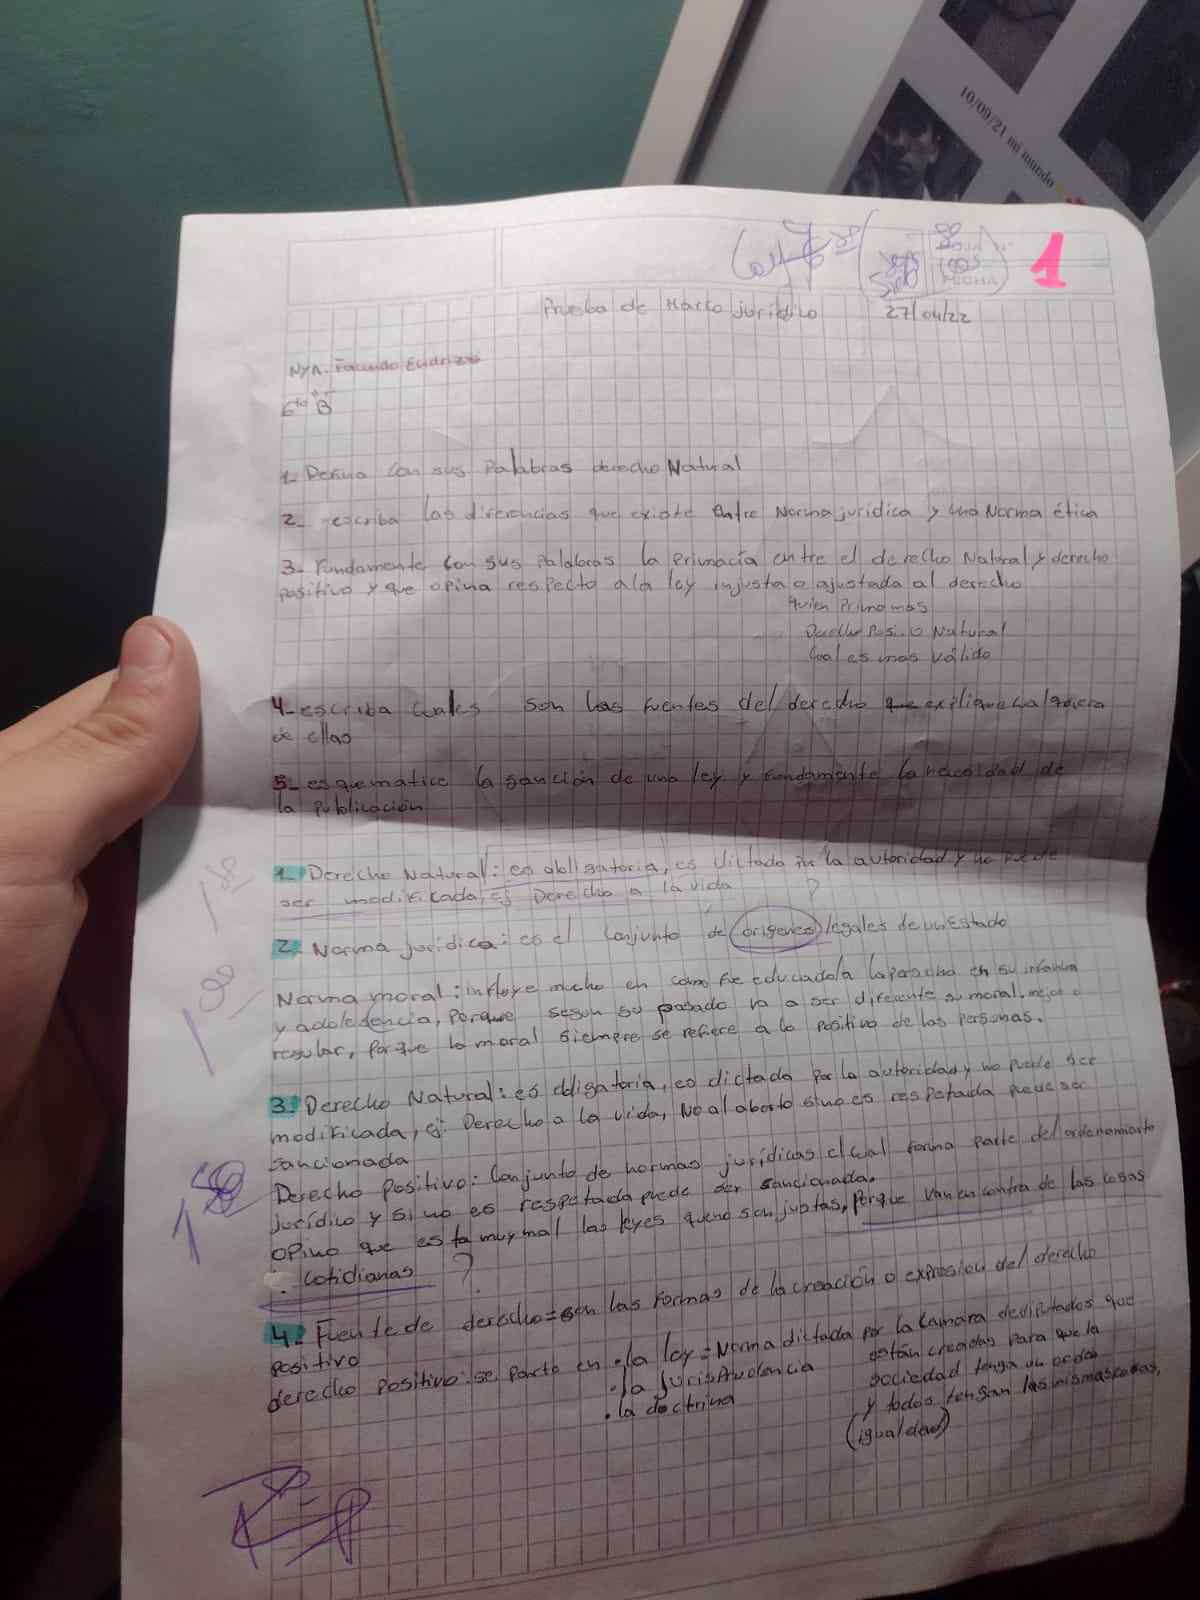 10/09/21 mi mundo
1
FECHA
Prueba de Marco jurídico 27/04/22
NyA. Facundo
6to "B"
1- Defina con sus Palabras derecho Natural
2- escriba las diferencias que existe entre Norma jurídica y una Norma ética
3- Fundamente con sus palabras la primacía entre el derecho Natural y derecho
positivo y que opina respecto a la ley injusta o ajustada al derecho
quien Primo mas
Natural
Cual es mas válido
4- escriba cuales son las fuentes del derecho que explique cualquiera
de ellas
5- esquematice la sanción de una ley y fundamente la necesidad de
la publicación
1. Derecho Natural: es obligatoria, es dictada por la autoridad y no puede
ser modificada, ej Derecho a la vida ?
2. Norma jurídica: es el conjunto de origenes legales de un Estado
Norma moral: influye mucho en como fue educado/a la persona en su infancia
y adolescencia, Porque segun su pasado va a ser diferente su moral, mejor o
regular, Porque la moral siempre se refiere a lo positivo de las personas.
3. Derecho Natural: es obligatoria, es dictada por la autoridad y no puede ser
modificada, ej: Derecho a la vida, No al aborto si no es respetada puede ser
sancionada
Derecho Positivo: Conjunto de normas jurídicas el cual forma parte del ordenamiento
jurídico y si no es respetada puede ser sancionada.
Opino que esta muy mal las leyes que no son justas, Porque van en contra de las cosas
cotidianas ?
4. Fuente de derecho = son las formas de la creación o expresion del derecho
positivo
derecho positivo: se parte en • la ley = Norma dictada por la Camara de diputados que
• la jurisprudencia están creadas para que la
• la doctrina sociedad tenga un orden
y todos tengan las mismas cosas,
(igualdad)